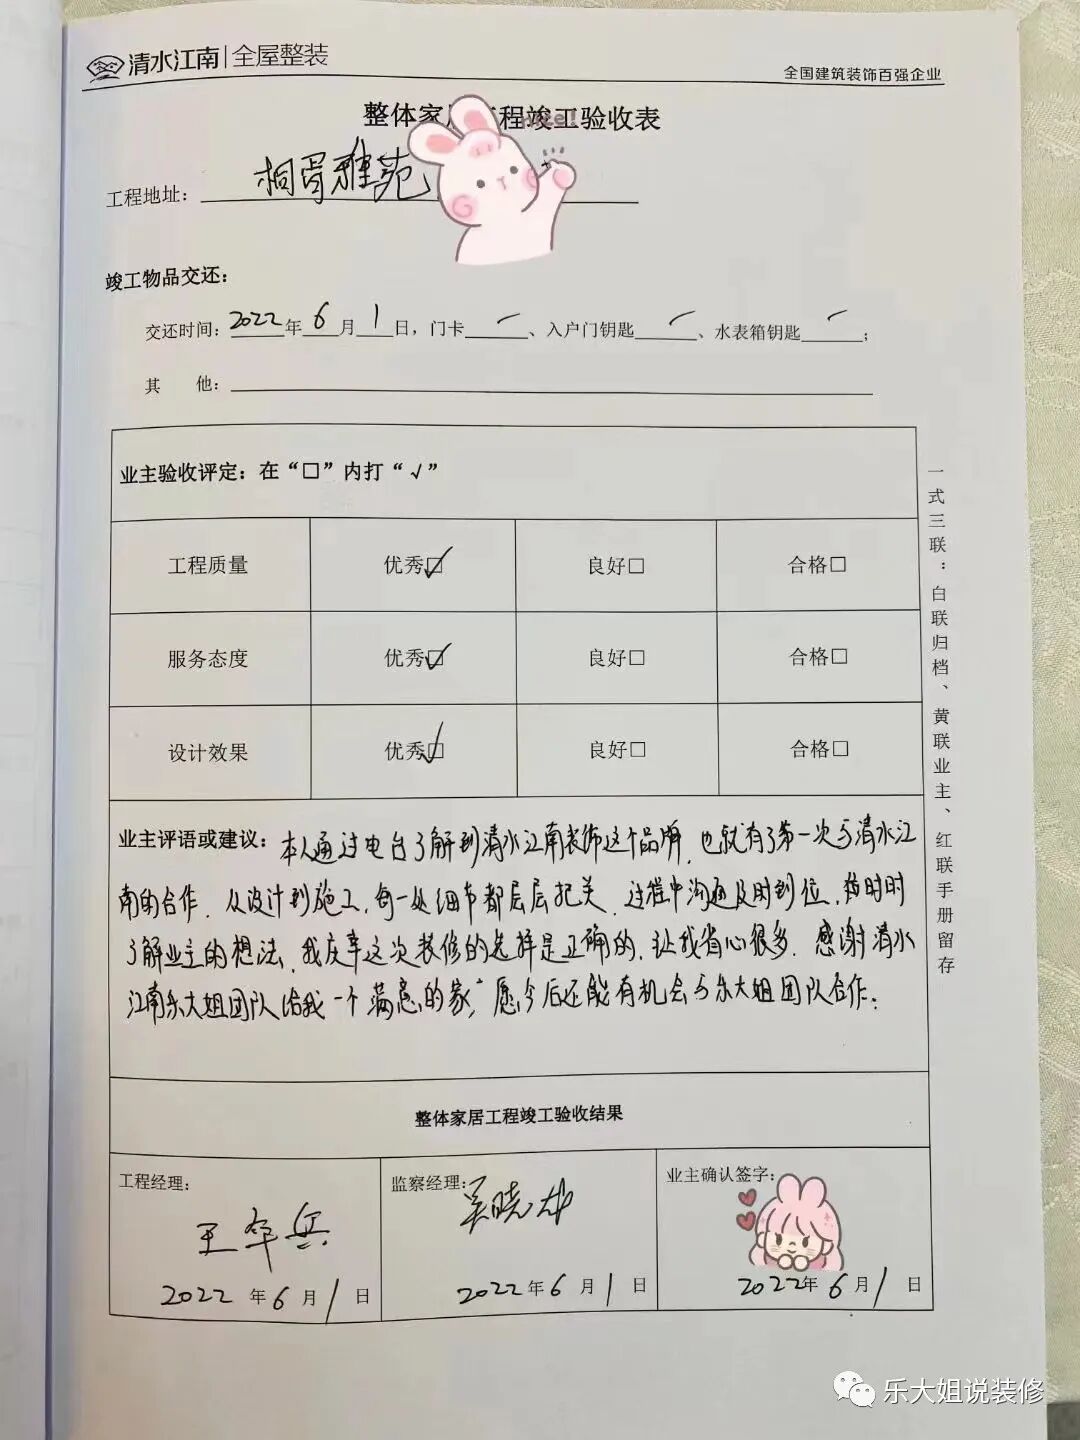 清水江南|全屋整装
全国建筑装饰百强企业
整体家居工程竣工验收表
nice!
工程地址：桐胥雅苑
竣工物品交还：
交还时间：2022年6月1日，门卡一、入户门钥匙一、水表箱钥匙一；
其 他：
业主验收评定：在“□”内打“√”
工程质量 优秀☑ 良好□ 合格□
服务态度 优秀☑ 良好□ 合格□
设计效果 优秀☑ 良好□ 合格□
业主评语或建议：本人通过电台了解到清水江南装饰这个品牌，也就有了第一次与清水江
南的合作．从设计到施工，每一处细节都层层把关．过程中沟通及时到位，按时时
了解业主的想法，我庆幸这次装修的选择是正确的，让我省心很多．感谢清水
江南乐大姐团队给我一个满意的家，愿今后还能有机会与乐大姐团队合作．
整体家居工程竣工验收结果
工程经理： 监察经理： 业主确认签字：
王华兵 吴晓雄
2022年6月1日 2022年6月1日 2022年6月1日
一式三联：白联归档、黄联业主、红联手册留存
乐大姐说装修